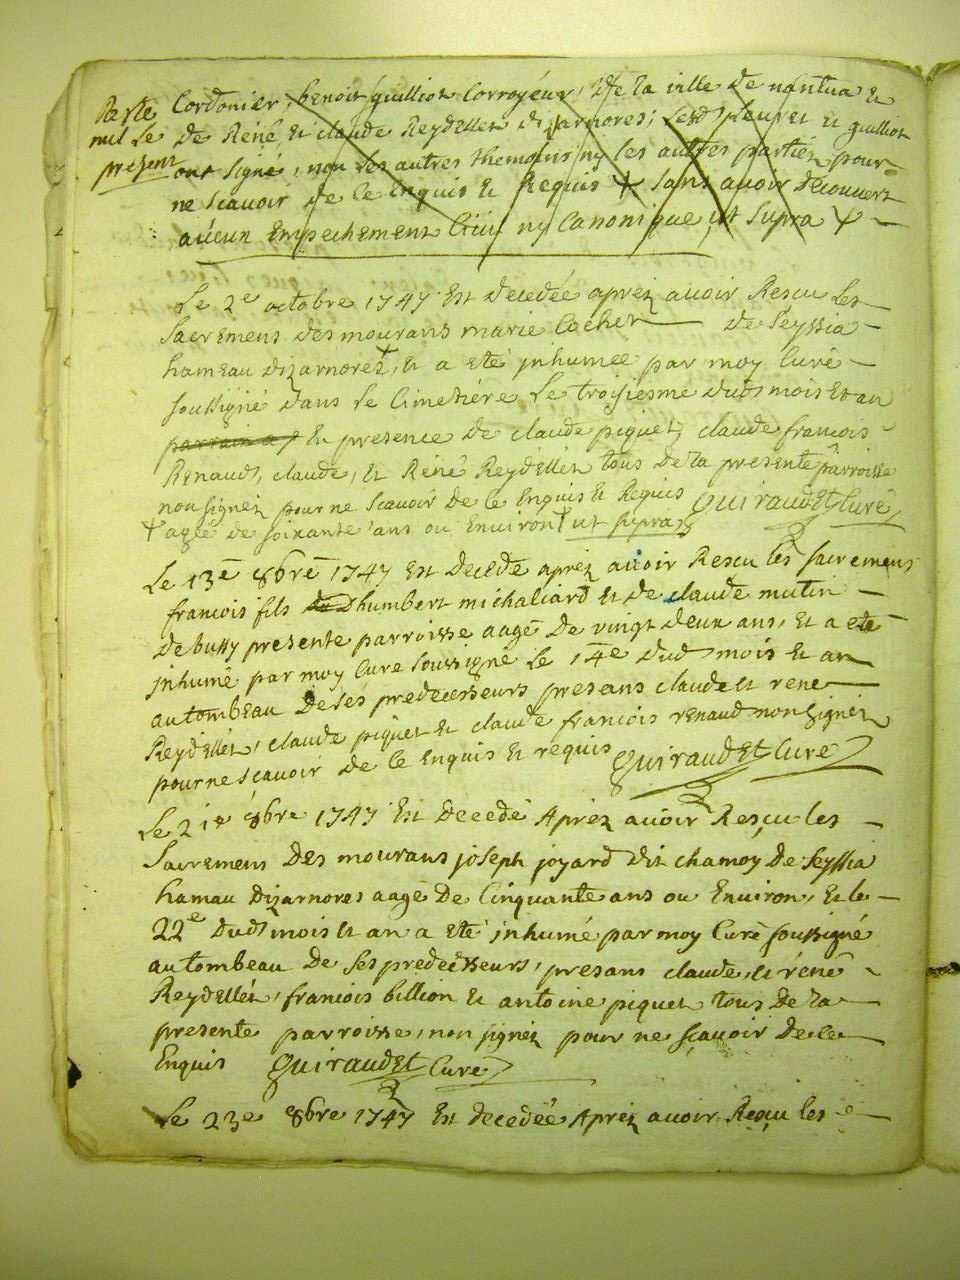 Reste
nul le
present
Cordonier, benoit guilliot Corroyeur, de la ville de nantua et
de Réné, et claude Reydellet d'izarnores; lesd. et guilliot
ont signé, non les autres themoins ny les autres parties pour
ne scavoir de ce Enquis et Requis + sans avoir découvert
aucun Empechement Civil ny Canonique ut supra +
Le 2e octobre 1747 Est decedée aprez avoir Rescu les
Sacremens des mourans marie Cochet de Seyssia
hameau dizarnorez+, et a eté inhumée par moy Curé
soussigné dans le Cimetiére le troisiesme dud mois et an
En presence de claude piquet, claude francois
Renaud, claude, et Réné Reydellet tous de la presente parroisse
non signez pour ne scavoir de ce Enquis et Requis Quiraudet Curé
+ agée de soixante ans ou Environ + ut supra
Le 13e 8bre 1747 Est decedé aprez avoir Rescu les sacremens
francois fils du Dhumbert michaliard et de claude mutin
de bussy presente parroisse aagé de vingt deux ans, Et a eté
inhumé par moy Cure soussigné le 14e dud mois et an
au tombeau de ses predecesseurs presans claude et rene
Reydellet, claude piquet et claude francois renaud non signez
pour ne scavoir de ce Enquis et requis Quiraudet Curé
Le 21e 8bre 1747 Est decedé Aprez avoir Resçu les
Sacremens des mourans joseph joyard dit chamoy de Seyssia
hamau dizarnores aagé de Cinquante ans ou Environ, Et le
22e dud mois et an a eté inhumé par moy Curé soussigné
au tombeau de ses predecesseurs, presans claude, et réné
Reydellet, francois billion et antoine piquet tous de la
presente parroisse, non signez pour ne sçavoir de ce
Enquis Quiraudet Curé
Le 23e 8bre 1747 Est decedée Aprez avoir Resçu les